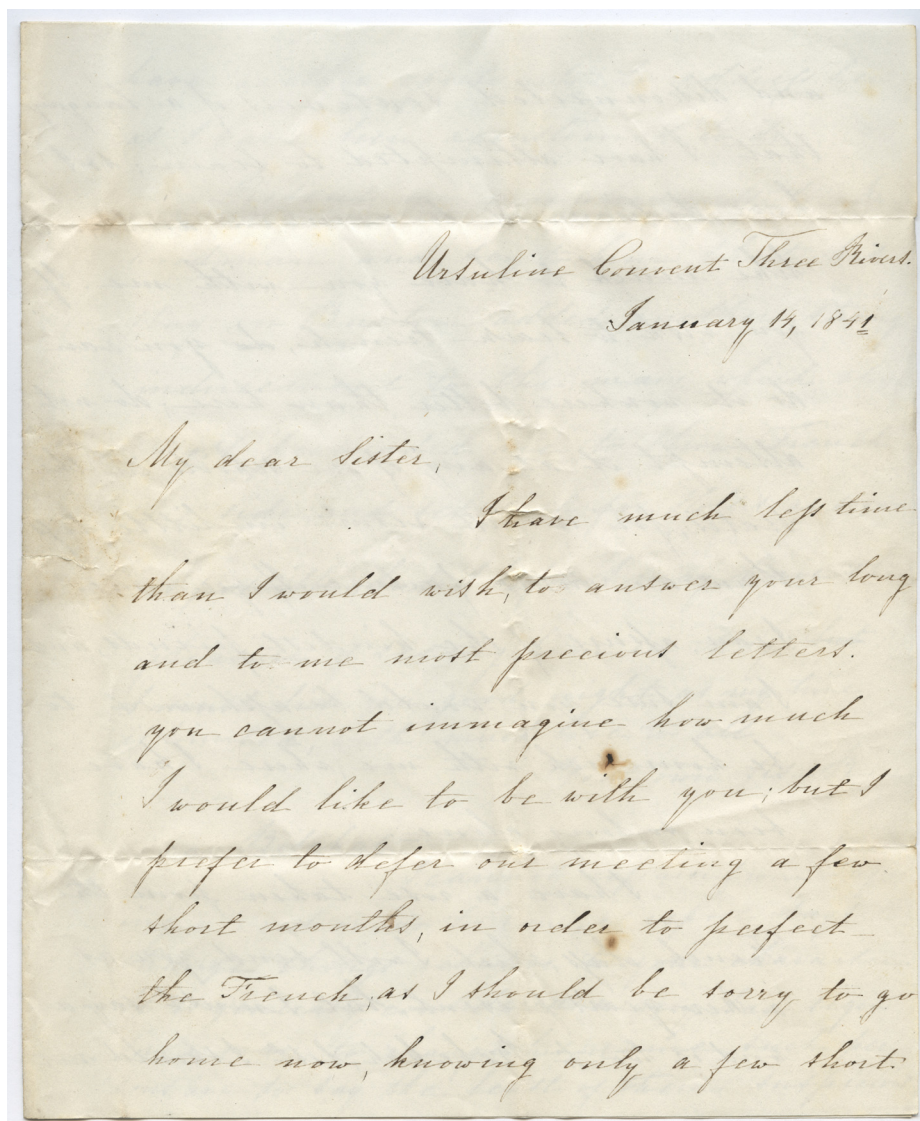 Ursuline Convent Three Rivers.
January 14, 1841
My dear Sister,
I have much less time
than I would wish, to answer your long
and to me most precious letters.
you cannot immagine how much
I would like to be with you; but I
prefer to defer our meeting a few
short months, in order to perfect
the French, as I should be sorry to go
home now, knowing only a few short